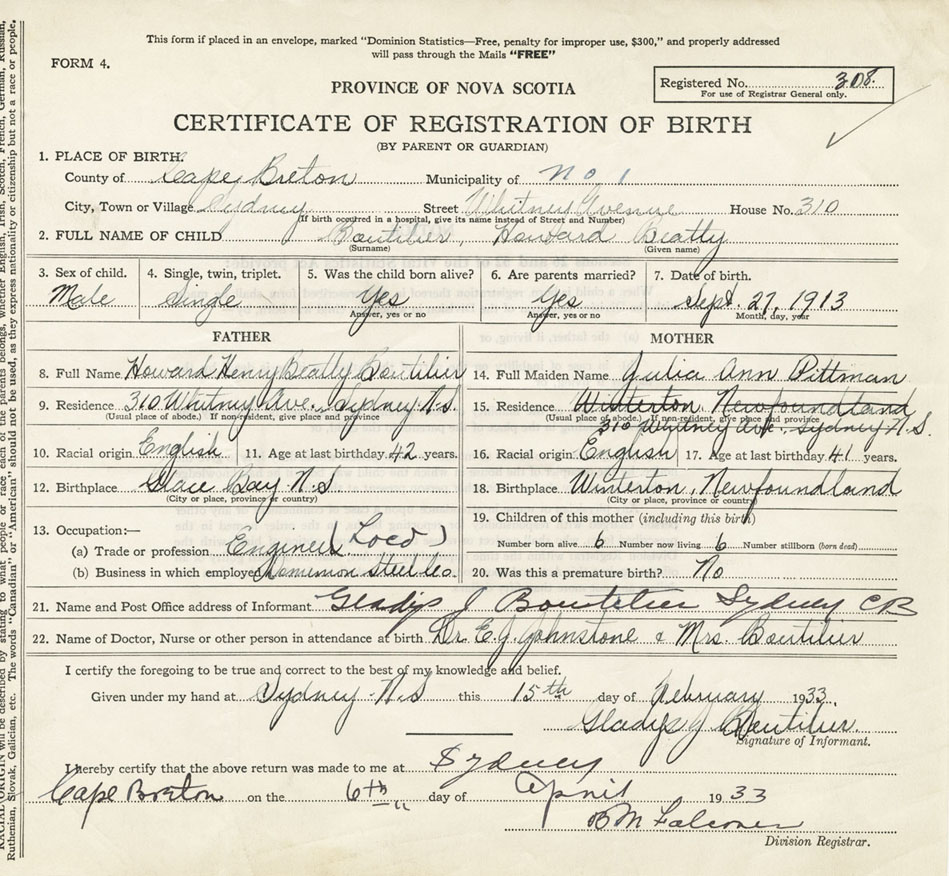 This form if placed in an envelope, marked "Dominion Statistics—Free, penalty for improper use, $300," and properly addressed
will pass through the Mails "FREE"
FORM 4.
Registered No. 308.
For use of Registrar General only.
PROVINCE OF NOVA SCOTIA
CERTIFICATE OF REGISTRATION OF BIRTH
(BY PARENT OR GUARDIAN)
1. PLACE OF BIRTH:
County of Cape Breton Municipality of No 1
City, Town or Village Sydney Street Whitney Avenue House No. 310
(If birth occurred in a hospital, give its name instead of Street and Number)
2. FULL NAME OF CHILD Boutilier, Howard Beatty
(Surname) (Given name)
3. Sex of child. 4. Single, twin, triplet. 5. Was the child born alive? 6. Are parents married? 7. Date of birth.
Male Single Yes Yes Sept. 27, 1913
Answer, yes or no Answer, yes or no Month, day, year
FATHER MOTHER
8. Full Name Howard Henry Beatty Boutilier 14. Full Maiden Name Julia Ann Pittman
9. Residence 310 Whitney Ave. Sydney N.S. 15. Residence Winterton, Newfoundland
(Usual place of abode.) If non-resident, give place and province (Usual place of abode.) If non-resident, give place and province
310 Whitney Ave. Sydney N.S.
10. Racial origin English 11. Age at last birthday 42 years. 16. Racial origin English 17. Age at last birthday 41 years.
12. Birthplace Glace Bay N.S. 18. Birthplace Winterton, Newfoundland
(City or place, province or country) (City or place, province or country)
13. Occupation:— 19. Children of this mother (including this birth)
(a) Trade or profession Engineer (Loco) Number born alive 6 Number now living 6 Number stillborn (born dead)
(b) Business in which employed Dominion Steel Co. 20. Was this a premature birth? No
21. Name and Post Office address of Informant Gladys J Boutilier Sydney CB
22. Name of Doctor, Nurse or other person in attendance at birth Dr. E.J. Johnstone & Mrs. Boutilier
I certify the foregoing to be true and correct to the best of my knowledge and belief.
Given under my hand at Sydney N.S this 15th day of February 1933.
Gladys J Boutilier.
Signature of Informant.
I hereby certify that the above return was made to me at Sydney
Cape Breton on the 6th day of April 1933
B M Falconer
Division Registrar.
RACIAL ORIGIN will be described by stating to what people or race each of the parents belongs, whether English, Irish, Scotch, French, German, Russian,
Ruthenian, Slovak, Galician, etc. The words "Canadian" or "American" should not be used, as they express nationality or citizenship but not a race or people.